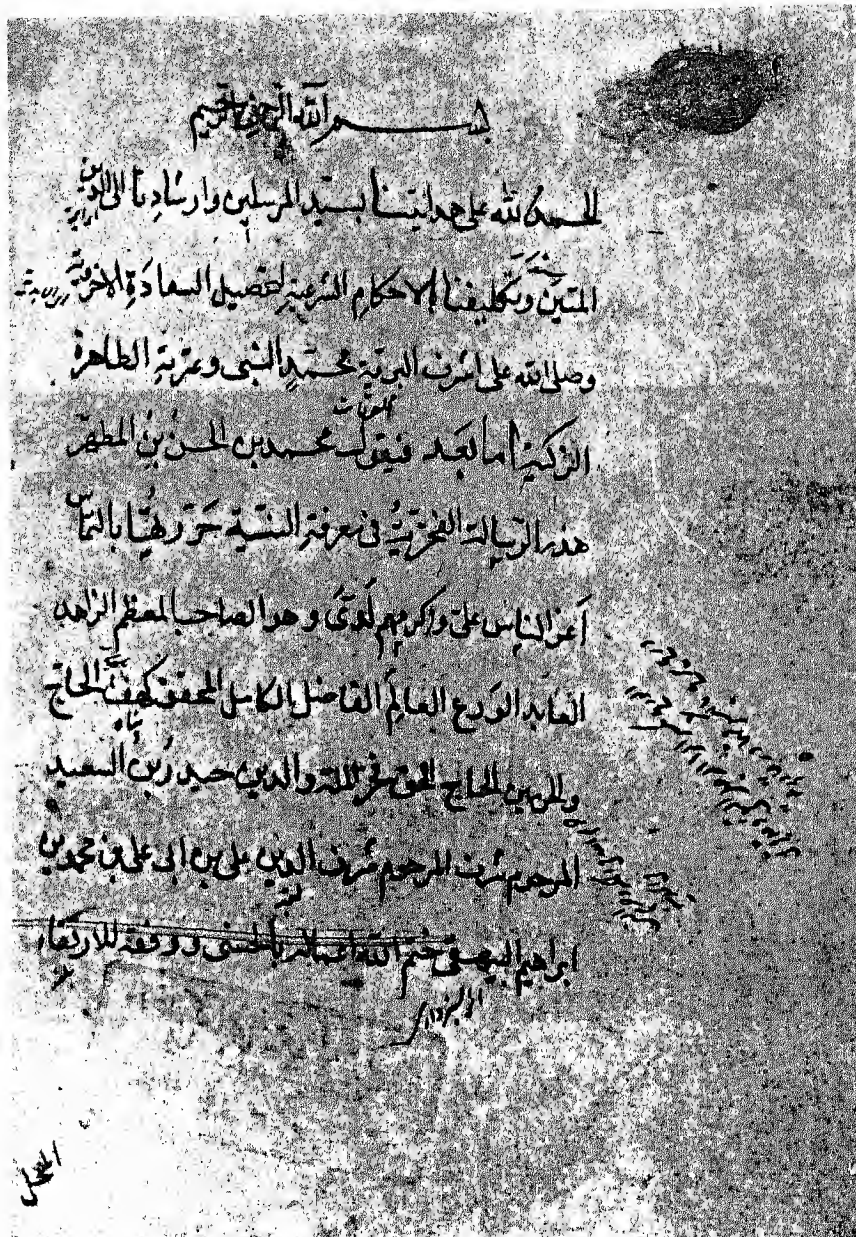 بسم الله الرحمن الرحيم
الحمد لله على هدايتنا بسيد المرسلين وارشادنا الى الدين
المتين وتكليفنا بالاحكام الشرعية لتحصيل السعادة الاخروية
وصلى الله على اشرف البرية محمد النبي وعترته الطاهرة
الزكية اما بعد فيقول محمد بن الحسن بن المطهر
هذه الرسالة الفخرية في معرفة النية حررتها بالتماس
أعز الناس علي واكرمهم لدي وهو الصاحب المعظم الزاهد
العابد الورع العالم الفاضل الكامل المحقق كهف الحاج
والحرمين الحاج فخر الملة والدين حيدر بن السعيد
المرحوم شرف الدين علي بن ابي علي بن محمد بن
ابراهيم البيهقي ختم الله اعماله بالحسنى ووفقه للارتقاء
المحل